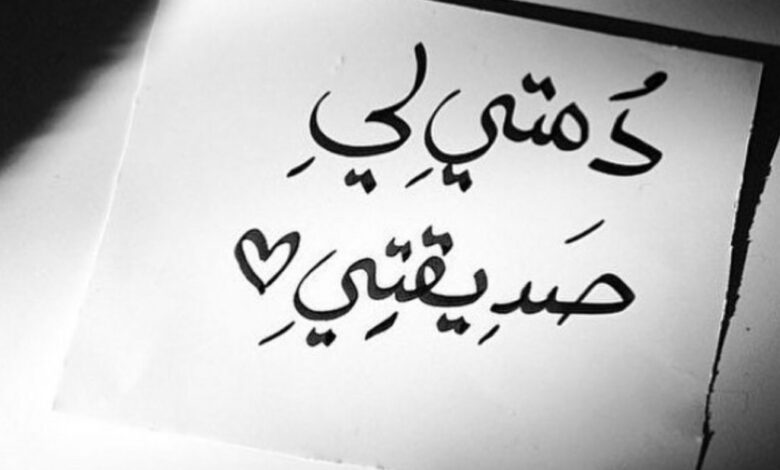 دُمتي لِي
صَدِيقتِي ♡